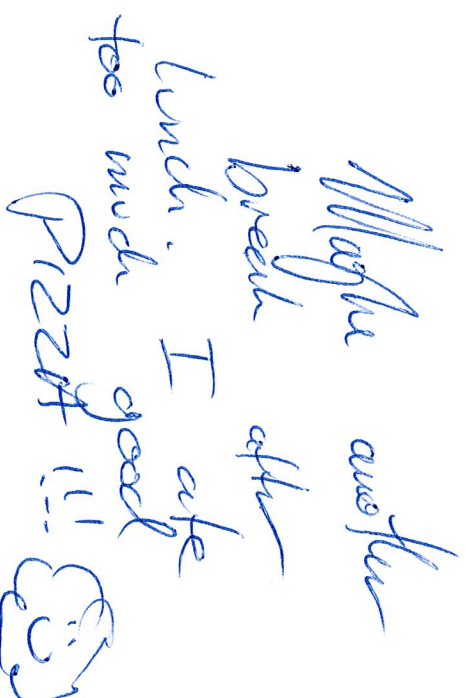 Maybe another
break after
lunch. I ate
too much good
PIZZA !!!